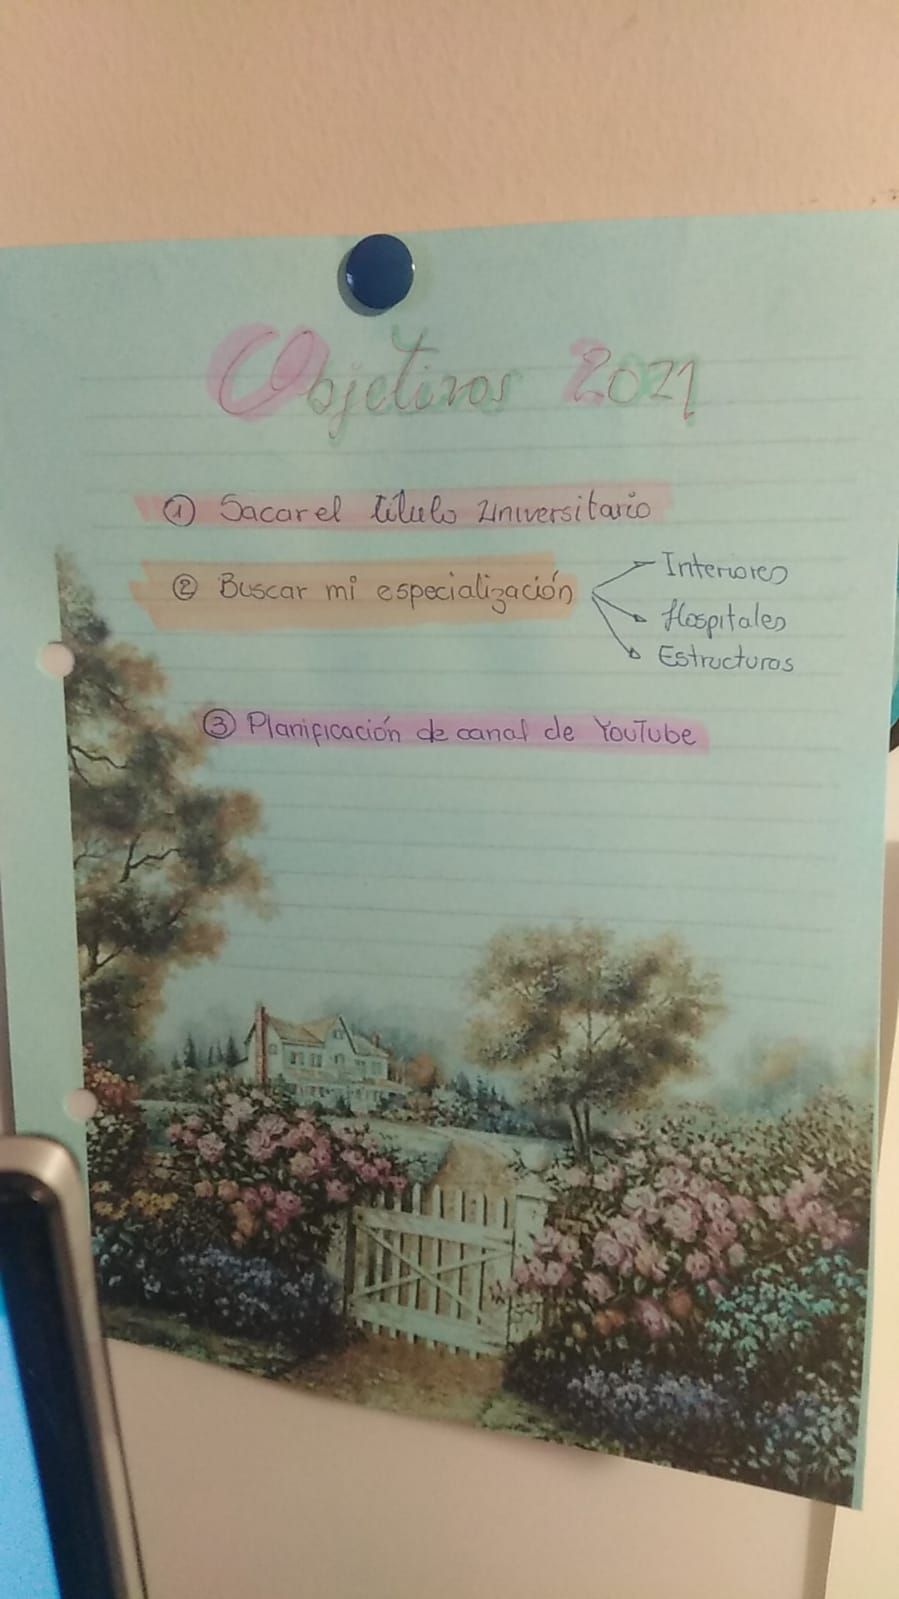 Objetivos 2021
① Sacar el título Universitario
② Buscar mi especialización
Interiores
Hospitales
Estructuras
③ Planificación de canal de YouTube